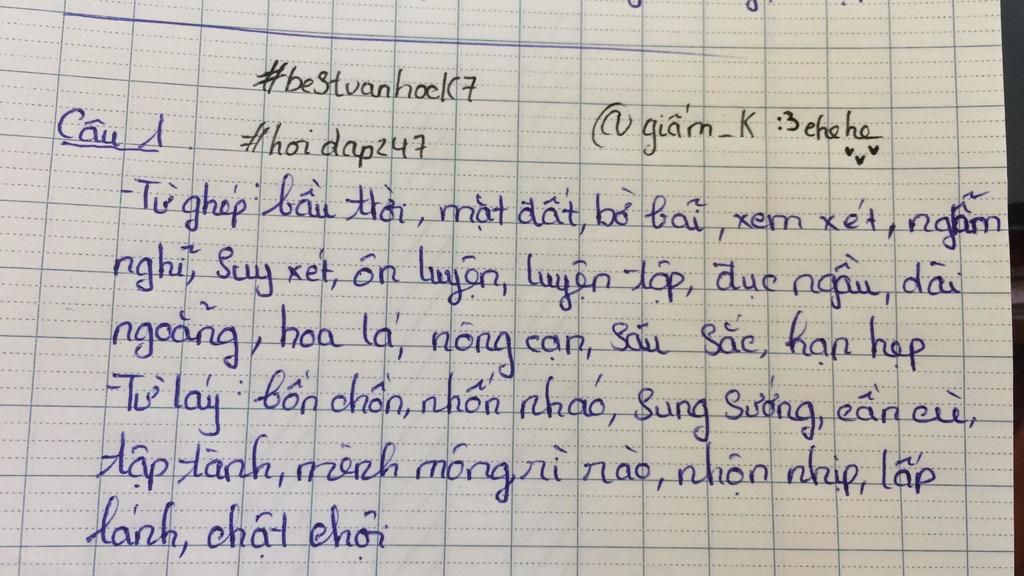 #bestvanhock7
Câu 1
#hoidap247
@giấm_K :3 ehehe
-Từ ghép: bầu trời, mặt đất, bờ bãi, xem xét, ngẫm
nghĩ, suy xét, ôn luyện, luyện tập, đục ngầu, dài
ngoẵng, hoa lá, nông cạn, sâu sắc, hạn hẹp
-Từ láy: bồn chồn, nhốn nháo, sung sướng, cần cù,
tập tành, mênh mông, rì rào, nhộn nhịp, lấp
lánh, chật chội